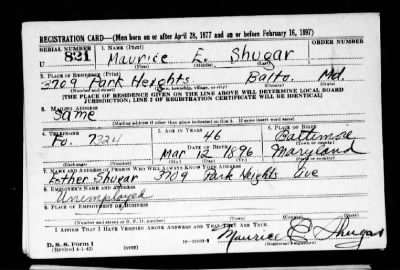 REGISTRATION CARD—(Men born on or after April 28, 1877 and on or before February 16, 1897)
SERIAL NUMBER 1. NAME (Print) ORDER NUMBER
U 821 Maurice E. Shugar
(First) (Middle) (Last)
2. PLACE OF RESIDENCE (Print)
3709 Park Heights Balto. Md.
(Number and street) (Town, township, village, or city) (County) (State)
[THE PLACE OF RESIDENCE GIVEN ON THE LINE ABOVE WILL DETERMINE LOCAL BOARD
JURISDICTION; LINE 2 OF REGISTRATION CERTIFICATE WILL BE IDENTICAL]
3. MAILING ADDRESS
Same
[Mailing address if other than place indicated on line 2. If same insert word same]
4. TELEPHONE 5. AGE IN YEARS 6. PLACE OF BIRTH
46 Baltimore
Fo. 7324 DATE OF BIRTH (Town or county)
Mar 12 1896 Maryland
(Exchange) (Number) (Mo.) (Day) (Yr.) (State or country)
7. NAME AND ADDRESS OF PERSON WHO WILL ALWAYS KNOW YOUR ADDRESS
Esther Shugar 3709 Park Heights Ave
8. EMPLOYER'S NAME AND ADDRESS
Unemployed
9. PLACE OF EMPLOYMENT OR BUSINESS
(Number and street or R. F. D. number) (Town) (County) (State)
I AFFIRM THAT I HAVE VERIFIED ABOVE ANSWERS AND THAT THEY ARE TRUE.
D. S. S. Form 1 Maurice E Shugar
(Revised 4-1-42) (over) (Registrant's signature)